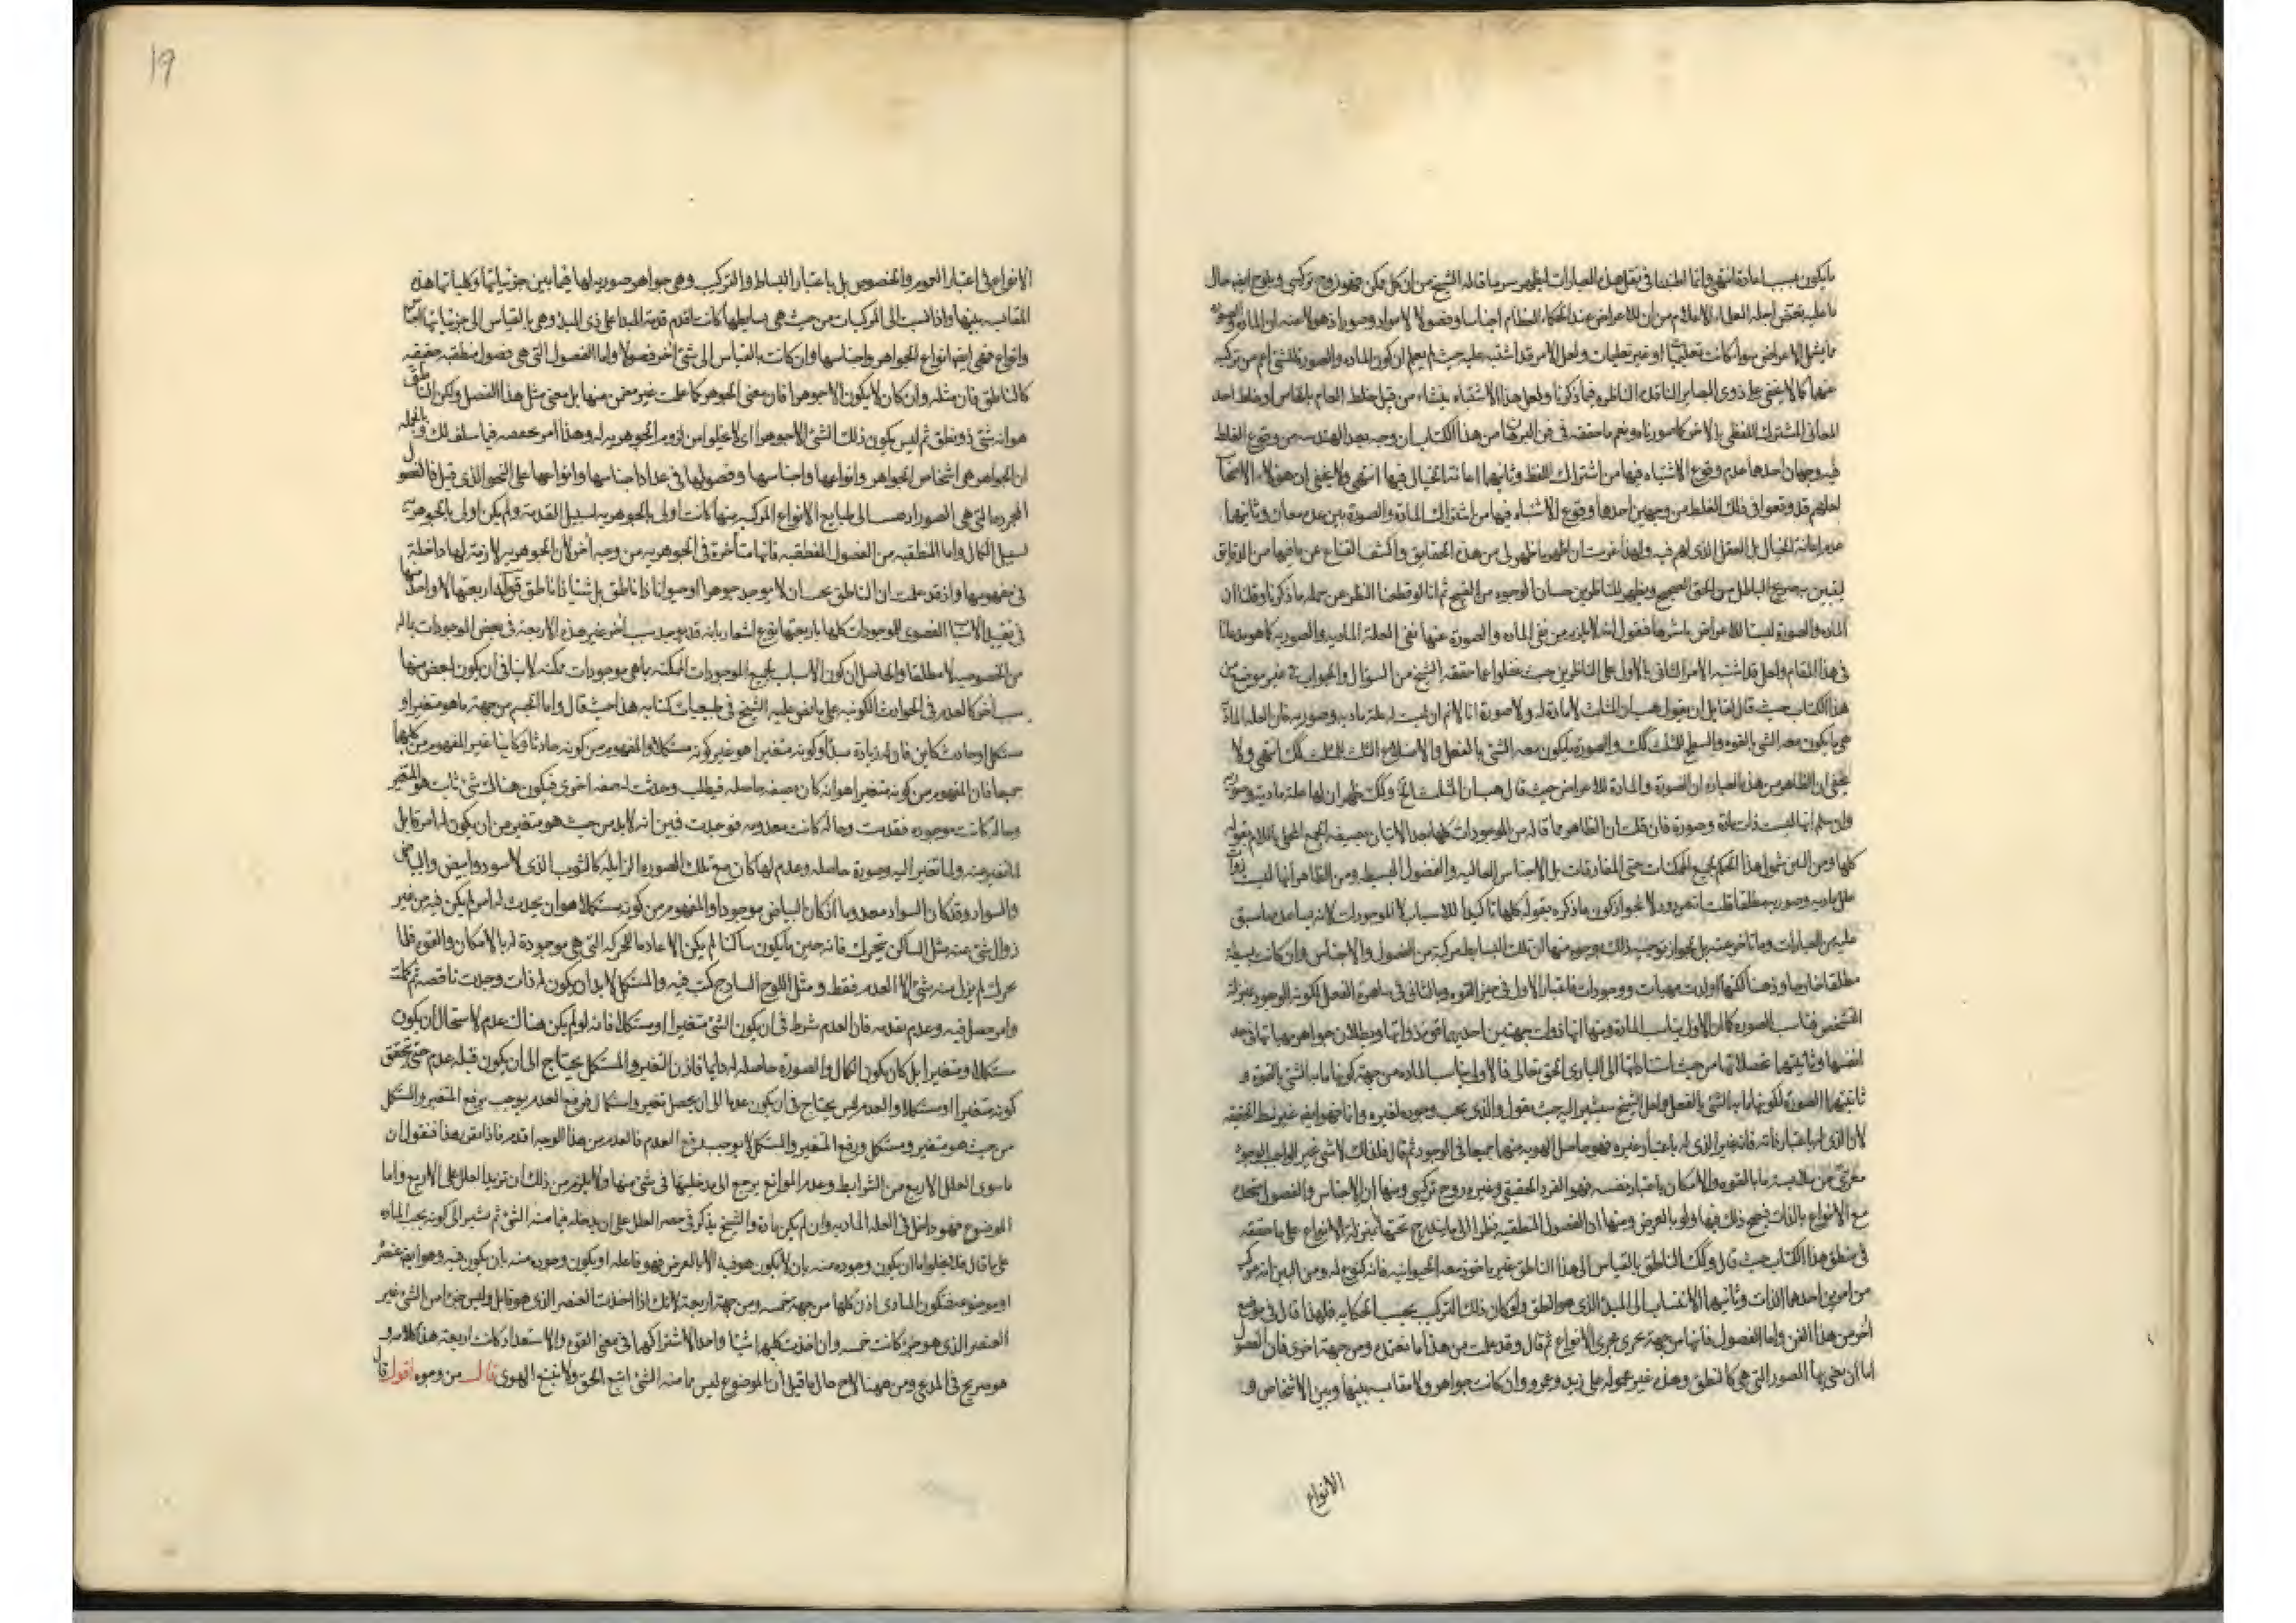 ما يكون بسبب امادة انتهى وانما اطنبنا فى نقل هذه العبارات ليظهر سر ما قاله الشيخ من ان كل ممكن فهو زوج تركيبى ويلوح ايضا حال
ما عليه بعض اجلة العلماء الاعلام من ان للاعراض عند الحكماء العظام اجناسا وفصولا لا مواد وصورا ذهولا منه ان المادة والصورة
مما يشمل الاعراض سواء كانت تعليميات او غير تعليميات ولعل الامر قد اشتبه عليه حيث لم يعلم ان كون المادة والصورة للشئ اعم من تركبه
منهما كما لا يخفى على ذوى البصاير الناقدة الناظرة فيما ذكرنا ولعل هذا الاشتباه ينشاء من قبل خلط العام بالخاص او خلط احد
المعانى المشترك اللفظى بالاخر كما صورناه ونعم ما حققه فى فن البرهان من هذا الكتاب ان وجه بعد الهندسه من وقوع الغلط
فيه وجهان احدهما عدم وقوع الاشتباه فيها من اشتراك اللفظ وثانيهما اعانة الخيال فيها انتهى ولا يخفى ان هؤلاء
لعلهم قد وقعوا فى ذلك الغلط من وجهين احدها وقوع الاشتباه فيها من اشتراك المادة والصورة بين عدة معان وثانيهما
عدم اعانة الخيال بل العقل الذى لهم فيه ولهذا عزمت ان اظهر ما ظهر لى من هذه الحقايق واكشف القناع عن ما فيها من الدقايق
ليتبين به صريح الباطل من الحق الصحيح ويظهر للناظرين حسان الوجوه من القبيح ثم انا لو قطعنا النظر عن جملة ما ذكرنا وقلنا ان
المادة والصورة ليستا للاعراض باسرها فنقول انه لا يلزم من نفى المادة والصورة عنها نفى العلة المادية والصورية كما هو مدعانا
فى هذا المقام ولعل قد اشتبه الامر الثانى بالاول على الناظرين حيث غفلوا عما حققه الشيخ من السؤال والجواب فى غير موضع من
هذا الكتاب حيث قال لقايل ان يقول هب ان المثلث لا مادة له ولا صورة انا لا نم ان ليست له علة مادية وصورية فان العلة المادة
هى ما يكون معه الشئ بالقوه والسطح للمثلث كك والصورة ما يكون معه الشئ بالفعل والاضلاع الثلث للمثلث كك انتهى ولا
يخفى ان الظاهر من هذه العبارة ان الصورة والمادة للاعراض حيث قال هب ان المثلث وكك ظهر ان لها علة مادية وصورية
وان سلم انها ليست ذات مادة وصورة فان قلت ان الظاهر مما قاله من الموجودات كلها بعد الاتيان بصيغة الجمع المحلى باللام بقوله
كلها ومن البين شمول هذا الحكم لجميع الممكنات حتى المفارقات بل الاجناس العالية والفصول البسيطة ومن الظاهر انها ليست ذوات
علل مادية وصورية مطلقا قلت انه مردود لا بجواز كون ما ذكره بقوله كلها تاكيدا للاسباب لا للموجودات لانه يساعده ما سبق
عليه من العبارات وما تاخر عنه بل بجواز توجيه ذلك بوجوه منها ان تلك البسايط مركبة من الفصول والاجناس وان كانت بسيطة
مطلقا خارجا وذهنا لكنها اولات مهيات ووجودات فاعتبار الاول فى حيز القوه وبالثانى فى ساهرة الفعل لكونه الوجود بمنزلة
التشخص فناسب الصورة كما ان الاول يناسب المادة ومنها انها ذوات جهتين احديهما قوة ذواتها وبطلان جواهر مهياتها فى حد
انفسها وثانيتهما تحصلاتها من حيث استنادها الى البارى الحق تعالى فالاولى يناسب المادة من جهة كونها ما به الشئ بالقوة و
ثانيتهما الصورة لكونها ما به الشئ بالفعل ولعل الشيخ سيشير اليه حيث يقول والذى يجب وجوده لغيره دائما فهو ايضا غير بسيط الحقيقة
لان الذى له باعتبار ذاته فانه غير الذى له باعتبار غيره فهو حاصل الهوية منهما جميعا فى الوجود ثم قال فلذلك لا شئ غير الواجب الوجود
معرى عن ملابسة ما بالقوة والامكان باعتبار نفسه فهو الفرد الحقيقى وغيره زوج تركيبى ومنها ان الاجناس والفصول متحدة
مع الانواع بالذات فيصح ذلك فيها ولو بالعرض ومنها ان الفصول المنطقية نظرا الى ما يندرج تحتها بمنزلة الانواع على ما حققه
فى منطق هذا الكتاب حيث قال وكك الناطق بالقياس الى هذا الناطق غير ماخوذ معه الحيوانية فانه كنوع له ومن البين انه مركب
من امرين احدها الذات وثانيهما الانتساب الى المبدء الذى هو النطق ولو كان ذلك التركيب بحسب الحكاية فلهذا قال فى موضع
اخر من هذا الفن واما الفصول فانها من جهة تجرى مجرى الانواع ثم قال وقد علمت من هذا ما تعتده ومن جهة اخرى فان الفصول
اما ان يعنى بها الصور التى هى كالنطق وهذه غير محمولة على زيد وعمرو وان كانت جواهر ولا مقايسة بينها وبين الاشخاص و
الانواع
19
الانواع فى اعتبار العموم والخصوص بل باعتبار البساطة والتركيب وهى جواهر صورية لها فيما بين جزئياتها وكلياتها هذه
المقايسة بينها واذا نسبت الى المركبات من حيث هى بسايطها كانت اقدم قدمة المبدا على ذى المبدء وهى بالقياس الى جزئياتها اجناس
وانواع فهى ايضا انواع الجواهر واجناسها وان كانت بالقياس الى شئ اخر فصولا واما الفصول التى هى فصول منطقية حقيقية
كالناطق فان مثله وان كان لا يكون الا جوهرا فان معنى الجوهر كما علمت غير متضمن منها بل معنى مثل هذا الفصل وليكن الناطق
هو انه شئ ذو نطق ثم ليس يكون ذلك الشئ الا جوهرا اى لا يخلوا من لزوم الجوهرية له وهذا امر فيما سلف لك وبالجملة
ان الجواهر هى اشخاص الجواهر وانواعها واجناسها وفصولها فى عداد اجناسها وانواعها على النحو الذى قيل فالفصول
المجردة التى هى الصور اذا الى طبايع الانواع المركبة منها كانت اولى بالجوهرية لسبيل القدمة ولم يكن اولى بالجوهرية
لسبيل الكمال واما المنطقية من الفصول المنطقية فانها متأخرة فى الجوهرية من وجه اخر لان الجوهرية لازمة لها لا داخلة
فى مفهومها واذ قد علمت ان الناطق يجب ان لا يوجد جوهرا او حيوانا ذا ناطق بل شيئا ذا ناطق قوله اربعتها الا واحدا منها
فى تقييد الاسباب القصوى للموجودات كلها باربعتها نوع اشعار بانه قد يوجد سبب اخر غير هذه الاربعة فى بعض الموجودات بماله
من الخصوصية لا مطلقا والحاصل ان كون الاسباب لجميع الموجودات الممكنة بما هى موجودات ممكنة لا ينافى ان يكون لبعض منها
سبب اخر كالعدم فى الحوادث الكونية على ما نص عليه الشيخ فى طبيعيات كتابه هذا حيث قال واما الجسم من جهة ما هو متغير او
مستكمل او حادث كاين فان له زيادة مبدأ وكونه متغيرا هو غير كونه مستكملا والمفهوم من كونه حادثا وكاينا غير المفهوم من كليهما
جميعا فان المفهوم من كونه متغيرا هو انه كان بصفة حاصلة فبطلت وحدثت له صفة اخرى فيكون هناك شئ ثابت هو المتغير
وحالة كانت موجودة فقدمت وحالة كانت معدومة فوجدت فبين انه لابد من حيث هو متغير من ان يكون له امر قابل
لما تغير منه ولما تغير اليه وصورة حاصلة وعدم لها كان مع تلك الصورة الزايلة كالثوب الذى لا سود وابيض والبياض
والسواد وقد كان السواد معدوما اذ كان البياض موجودا والمفهوم من كونه مستكملا هو ان يحدث له امر لم يكن فيه من غير
زوال شئ عنه مثل الساكن يتحرك فانه حين ما يكون ساكنا لم يكن الا عادما للحركة التى هى موجودة له بالامكان والقوة فلما
تحرك لم يزل منه شئ الا العدم فقط ومثل اللوح الساذج كتب فيه والمستكمل لابد ان يكون له ذات وجدت ناقصة ثم كملت
وامر حصل فيه وعدم تقدمه فان العدم شرط فى ان يكون الشئ متغيرا او مستكملا فانه لو لم يكن هناك عدم لاستحال ان يكون
مستكملا ومتغيرا بل كان يكون الكمال والصورة حاصلة له دايما فاذن المتغير والمستكمل يحتاج الى ان يكون قبله عدم حتى يتحقق
كونه متغيرا او مستكملا والعدم ليس يحتاج فى ان يكون عدما الى ان يحصل تغير واستكمال فرفع العدم يوجب رفع المتغير والمستكمل
من حيث هو متغير ومستكمل ورفع المتغير والمستكمل لا يوجب رفع العدم فالعدم من هذا الوجه اقدم فاذا تقرر هذا فنقول ان
ما سوى العلل الاربع من الشرايط وعدم الموانع يرجع الى مدخليتها فى شئ منها ولا يلزم من ذلك ان تزيد العلل على الاربع واما
الموضوع فهو داخل فى العلة المادية وان لم يكن مادة والشيخ يذكر فى حصر العلل على ان يدخله فيما منه الشئ ثم يشير الى كونه بحسب المادة
على ما قال فلا يخلوا اما ان يكون وجوده منه بان لا يكون هو فيه الا بالعرض فهو فاعله او يكون وجوده منه بان يكون فيه وهو ايضا عنصر
او موضوعه فتكون المبادى اذن كلها من جهة خمسة ومن جهة اربعة لانك اذا اخذت العنصر الذى هو قابل وليس جزءا من الشئ غير
العنصر الذى هو جزء كانت خمسة وان اخذت كليهما شيئا واحدا لاشتراكهما فى معنى القوة والاستعداد كانت اربعة هذا كلامه و
هو صريح فى المدعى ومن ههنا لاح حال ما قيل ان الموضوع ليس ما منه الشئ اتبع الحق ولا تتبع الهوى قال من وجوه اقول قال